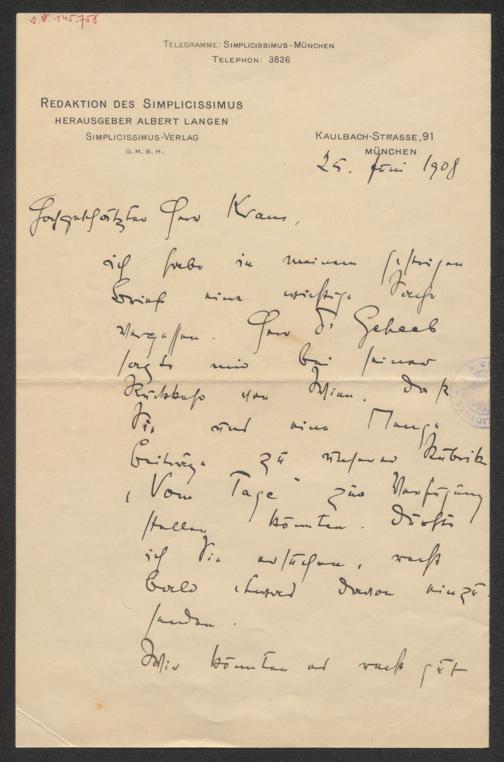 J.N. 145.758
TELEGRAMME: SIMPLICISSIMUS-MÜNCHEN
TELEPHON: 3826
REDAKTION DES SIMPLICISSIMUS
HERAUSGEBER ALBERT LANGEN
SIMPLICISSIMUS-VERLAG
G.M.B.H.
KAULBACH-STRASSE, 91
MÜNCHEN
25. Juni 1908
Hochgeschätzter Herr Kraus,
ich habe in meinem gestrigen
Brief eine wichtige Sache
vergessen. Herr Dr Geheeb
sagte mir bei seiner
Rückkehr von Wien, daß
Sie uns eine Menge
Beiträge zu unserer Rubrik
„Vom Tage" zur Verfügung
stellen könnten. Dürfte
ich Sie ersuchen, recht
bald etwas davon einzu-
senden.
Wir könnten es recht gut